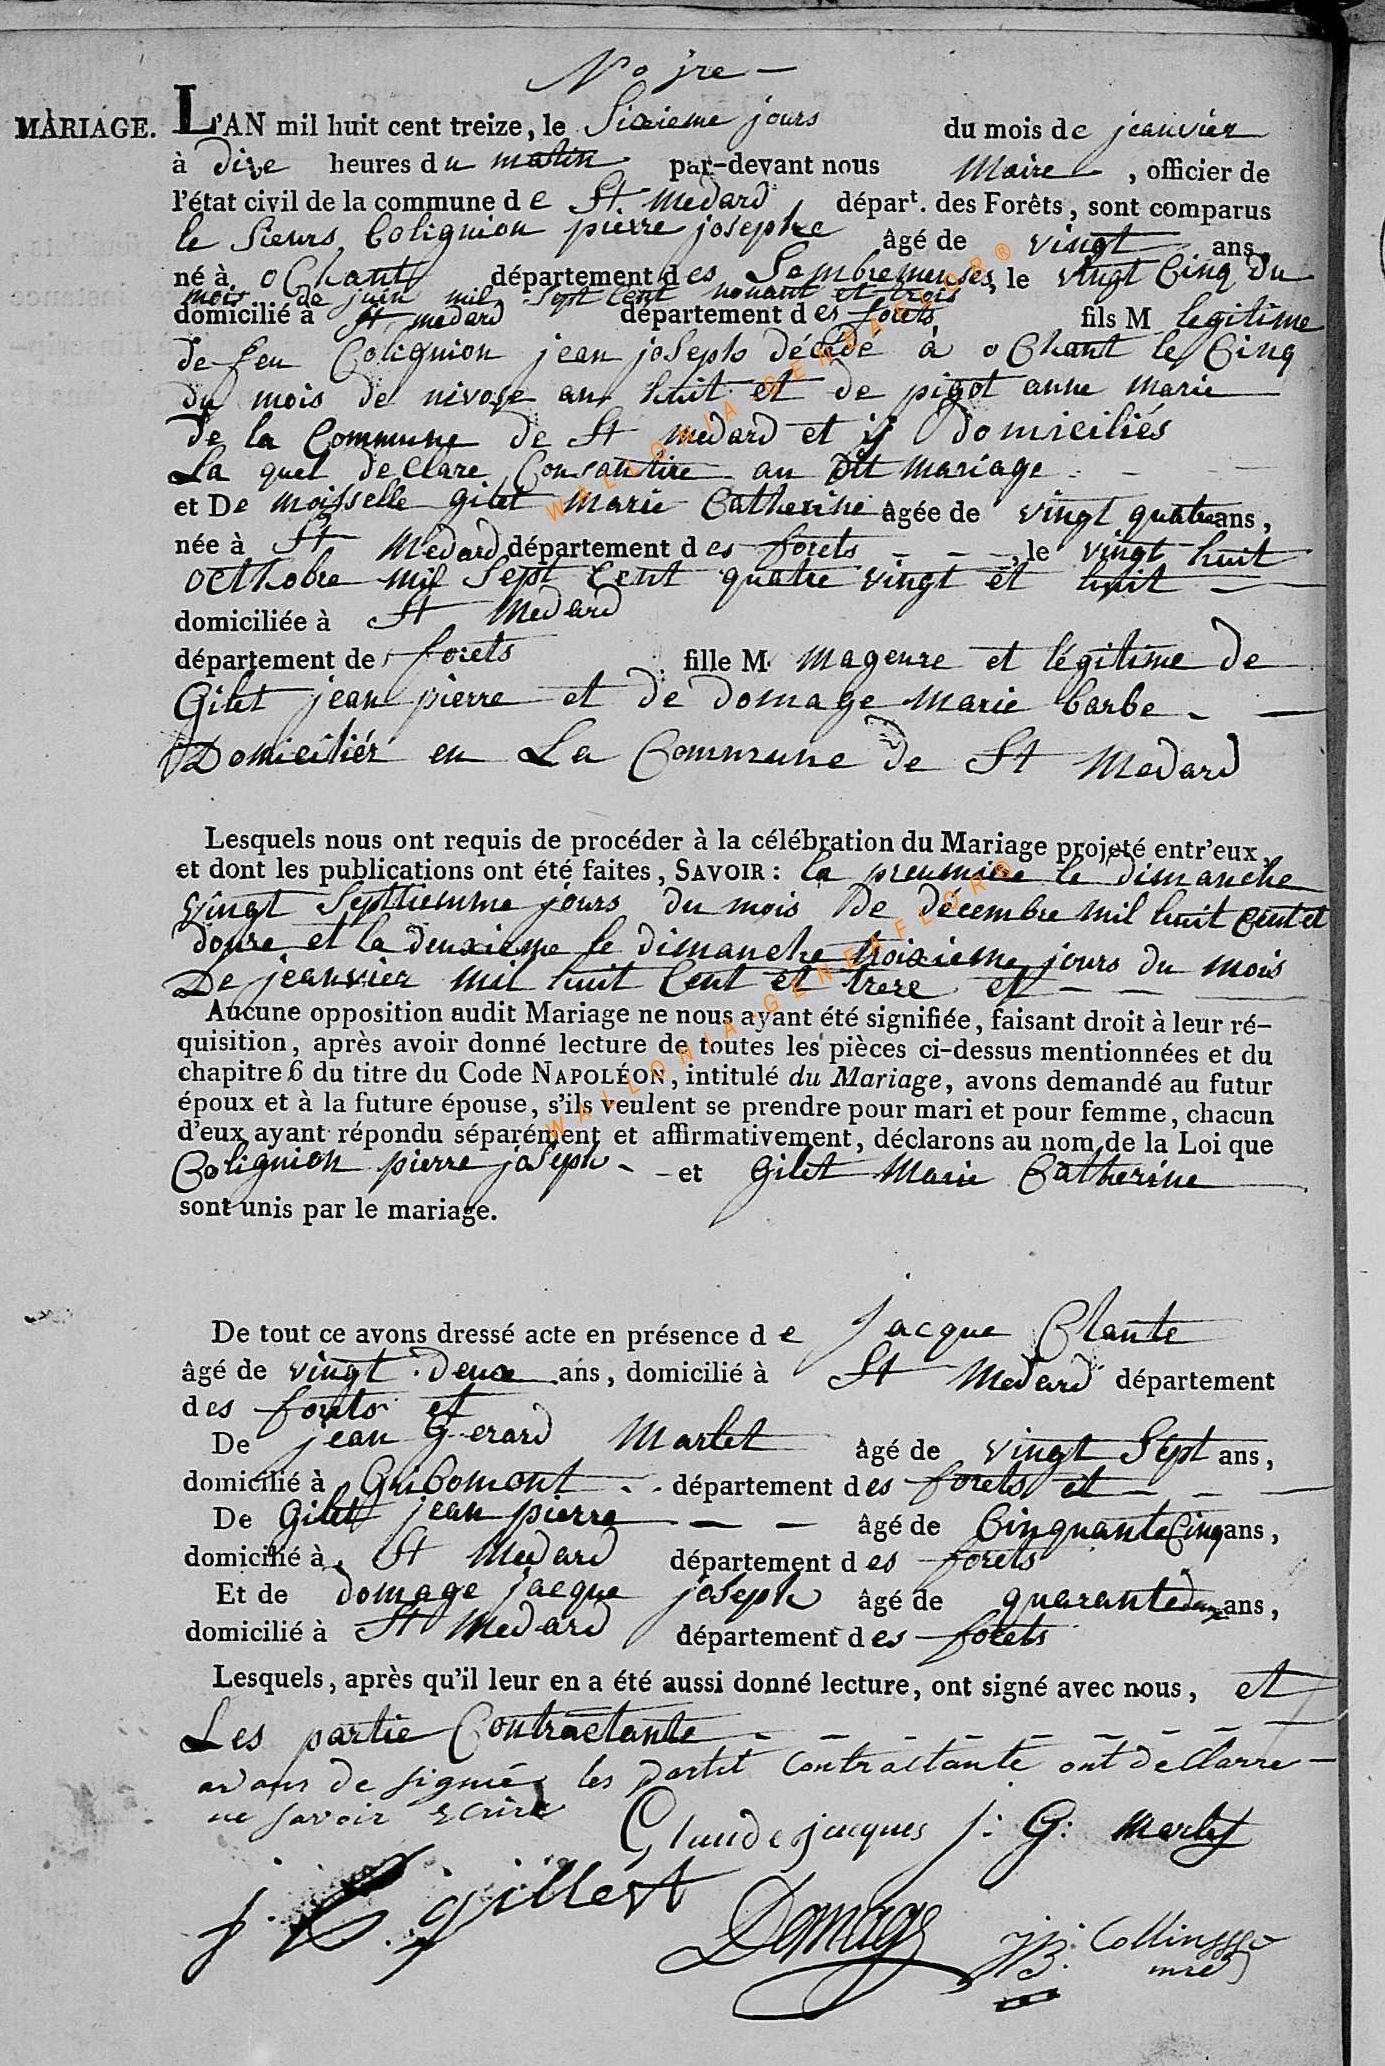 No 1re —
MARIAGE. L'AN mil huit cent treize, le Sixieme jours du mois de jeanvier
à dixe heures du matin par-devant nous Maire, officier de
l'état civil de la commune de St medard départ. des Forêts, sont comparus
le Sieurs Colignion pierre josephe âgé de vingt ans,
né à oChant département des Sambremeuses, le vingt Cinq du
mois de juin mil Sept Cent nonant et trois
domicilié à St medard département des forets fils M legitime
de feu Colignion jean joseph décédé à oChant le Cinq
du mois de nivose an huit et de pigot anne marie
de la Commune de St medard et ij domiciliés
La quel declare Consantire au dit mariage
et De moisselle gilet marie Catherine âgée de vingt quatre ans,
née à St Medard département des forets — — —, le vingt huit
octhobre mil Sept Cent quatre vingt et huit —
domiciliée à St Medard
département des forets fille M mageure et légitime de
Gilet jean pierre et de domage marie barbe — —
Domiciliér en La Commune de St Medard
Lesquels nous ont requis de procéder à la célébration du Mariage projeté entr'eux,
et dont les publications ont été faites, SAVOIR : la preumiere le dimanche
vingt Septtiemme jours du mois De décembre mil huit Cent et
douze et la deuxieme le dimanche troixieme jours du mois
De jeanvier mil huit Cent et treze et — —
Aucune opposition audit Mariage ne nous ayant été signifiée, faisant droit à leur ré-
quisition, après avoir donné lecture de toutes les pièces ci-dessus mentionnées et du
chapitre 6 du titre du Code NAPOLÉON, intitulé du Mariage, avons demandé au futur
époux et à la future épouse, s'ils veulent se prendre pour mari et pour femme, chacun
d'eux ayant répondu séparément et affirmativement, déclarons au nom de la Loi que
Colignion pierre joseph — — et Gilet Marie Catherine
sont unis par le mariage.
De tout ce avons dressé acte en présence de jacque Clante
âgé de vingt deux ans, domicilié à St Medard département
des forets et
De jean Gerard Marlet âgé de vingt Sept ans,
domicilié à Gribomont - - département des forets et — — —
De Gilet jean pierre — — — âgé de Cinquante Cinq ans,
domicilié à St Medard département des forets
Et de domage jacque joseph âgé de quarante deux ans,
domicilié à St Medard département des forets
Lesquels, après qu'il leur en a été aussi donné lecture, ont signé avec nous, et
Les partie Contractante — — — — — — —
avans de signé les partit Contractante ont déClarre —
ne savoir Ecrire
Glaude jacques j: G: Marlet
j. P. gillet Domage JB: Collinsse
mre
WALLONIA-GENEAFLOR®
WALLONIA-GENEAFLOR®